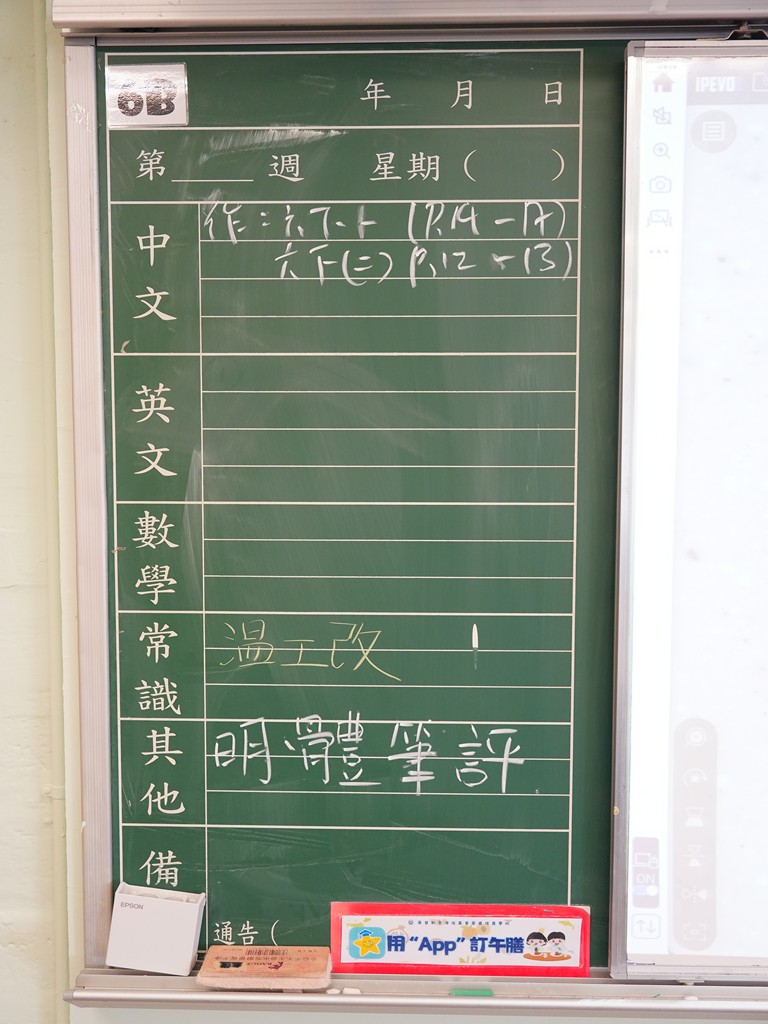 6B
年 月 日
第 週 星期（ ）
中文
作：六下一 (P.14 - 17)
六下(二) P.12 - 13)
英文
數學
常識
溫工改
其他
明體筆評
備
通告（
EPSON
用 "App" 訂午膳
IPEVO
ON